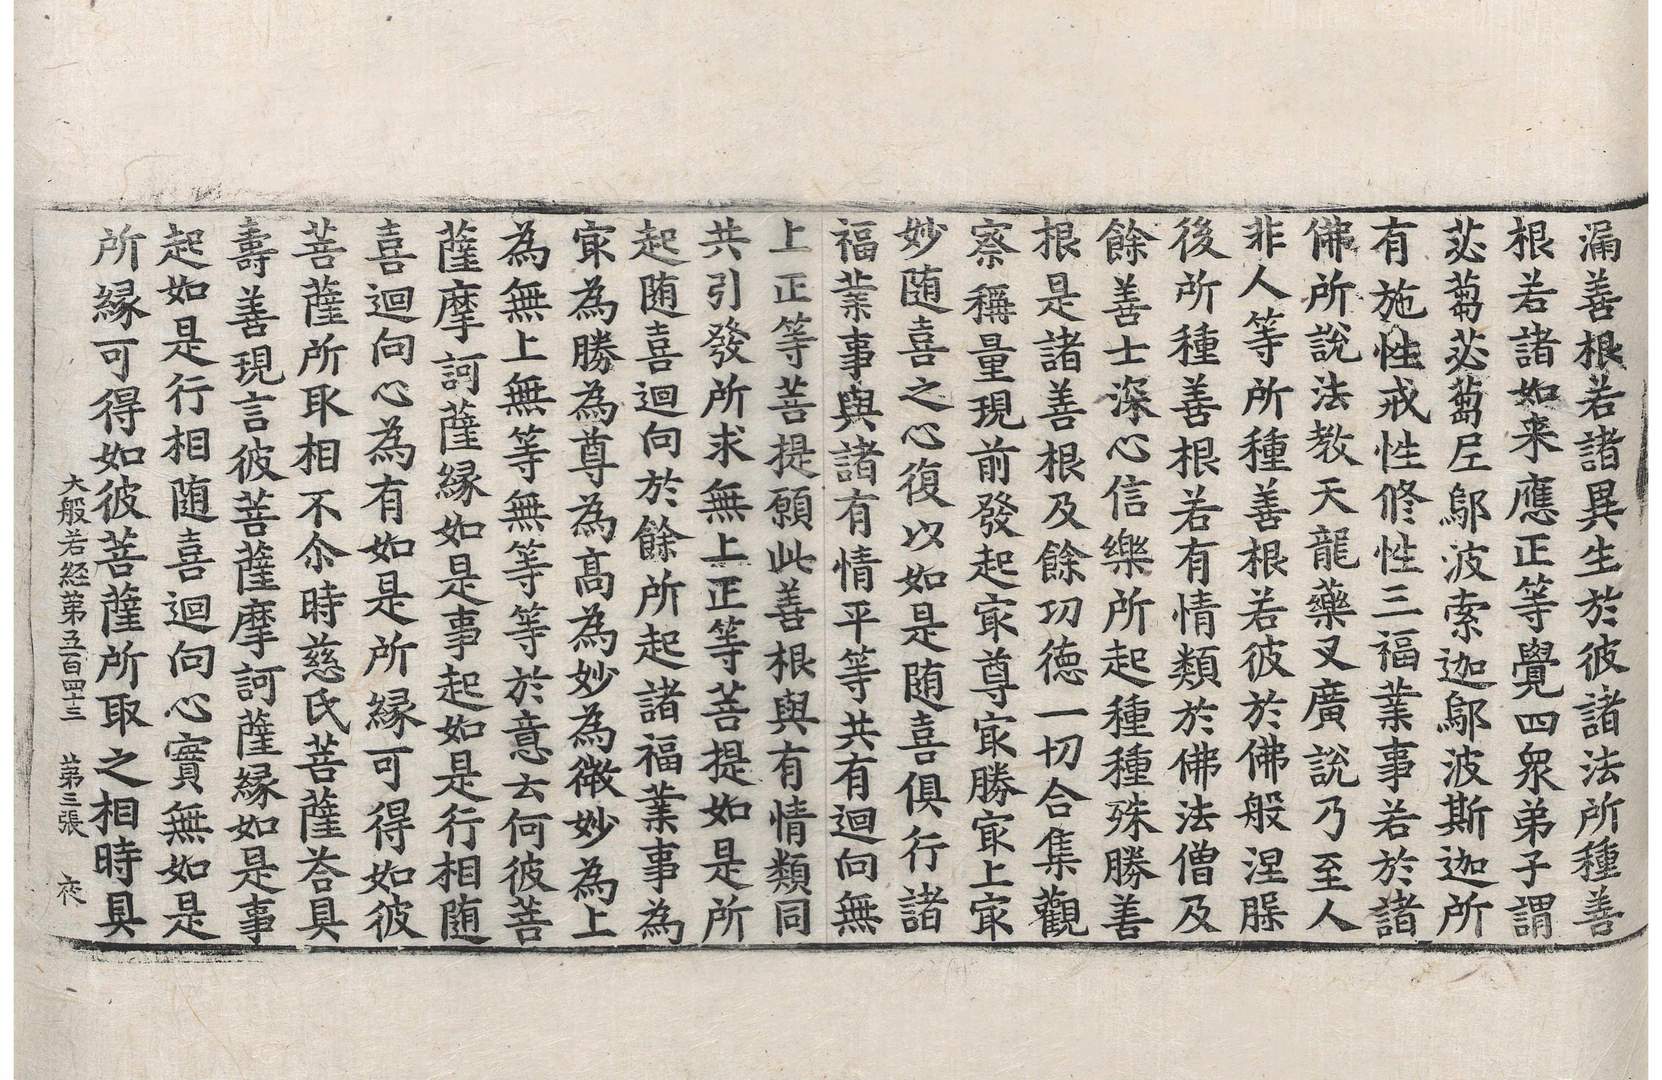 漏善根若諸異生於彼諸法所種善
根若諸如来應正等覺四衆弟子謂
苾蒭苾蒭尼鄔波索迦鄔波斯迦所
有施性戒性修性三福業事若於諸
佛所說法教天龍藥叉廣說乃至人
非人等所種善根若彼於佛般涅槃
後所種善根若有情類於佛法僧及
餘善士深心信樂所起種種殊勝善
根是諸善根及餘功德一切合集觀
察稱量現前發起㝡尊㝡勝㝡上㝡
妙随喜之心復以如是随喜俱行諸
福業事與諸有情平等共有迴向無
上正等菩提願此善根與有情類同
共引發所求無上正等菩提如是所
起随喜迴向於餘所起諸福業事為
㝡為勝為尊為高為妙為微妙為上
為無上無等無等等於意云何彼菩
薩摩訶薩緣如是事起如是行相随
喜迴向心為有如是所緣可得如彼
菩薩所取相不尒時慈氏菩薩荅具
壽善現言彼菩薩摩訶薩緣如是事
起如是行相随喜迴向心實無如是
所緣可得如彼菩薩所取之相時具
大般若經第五百四十三 第三張 夜